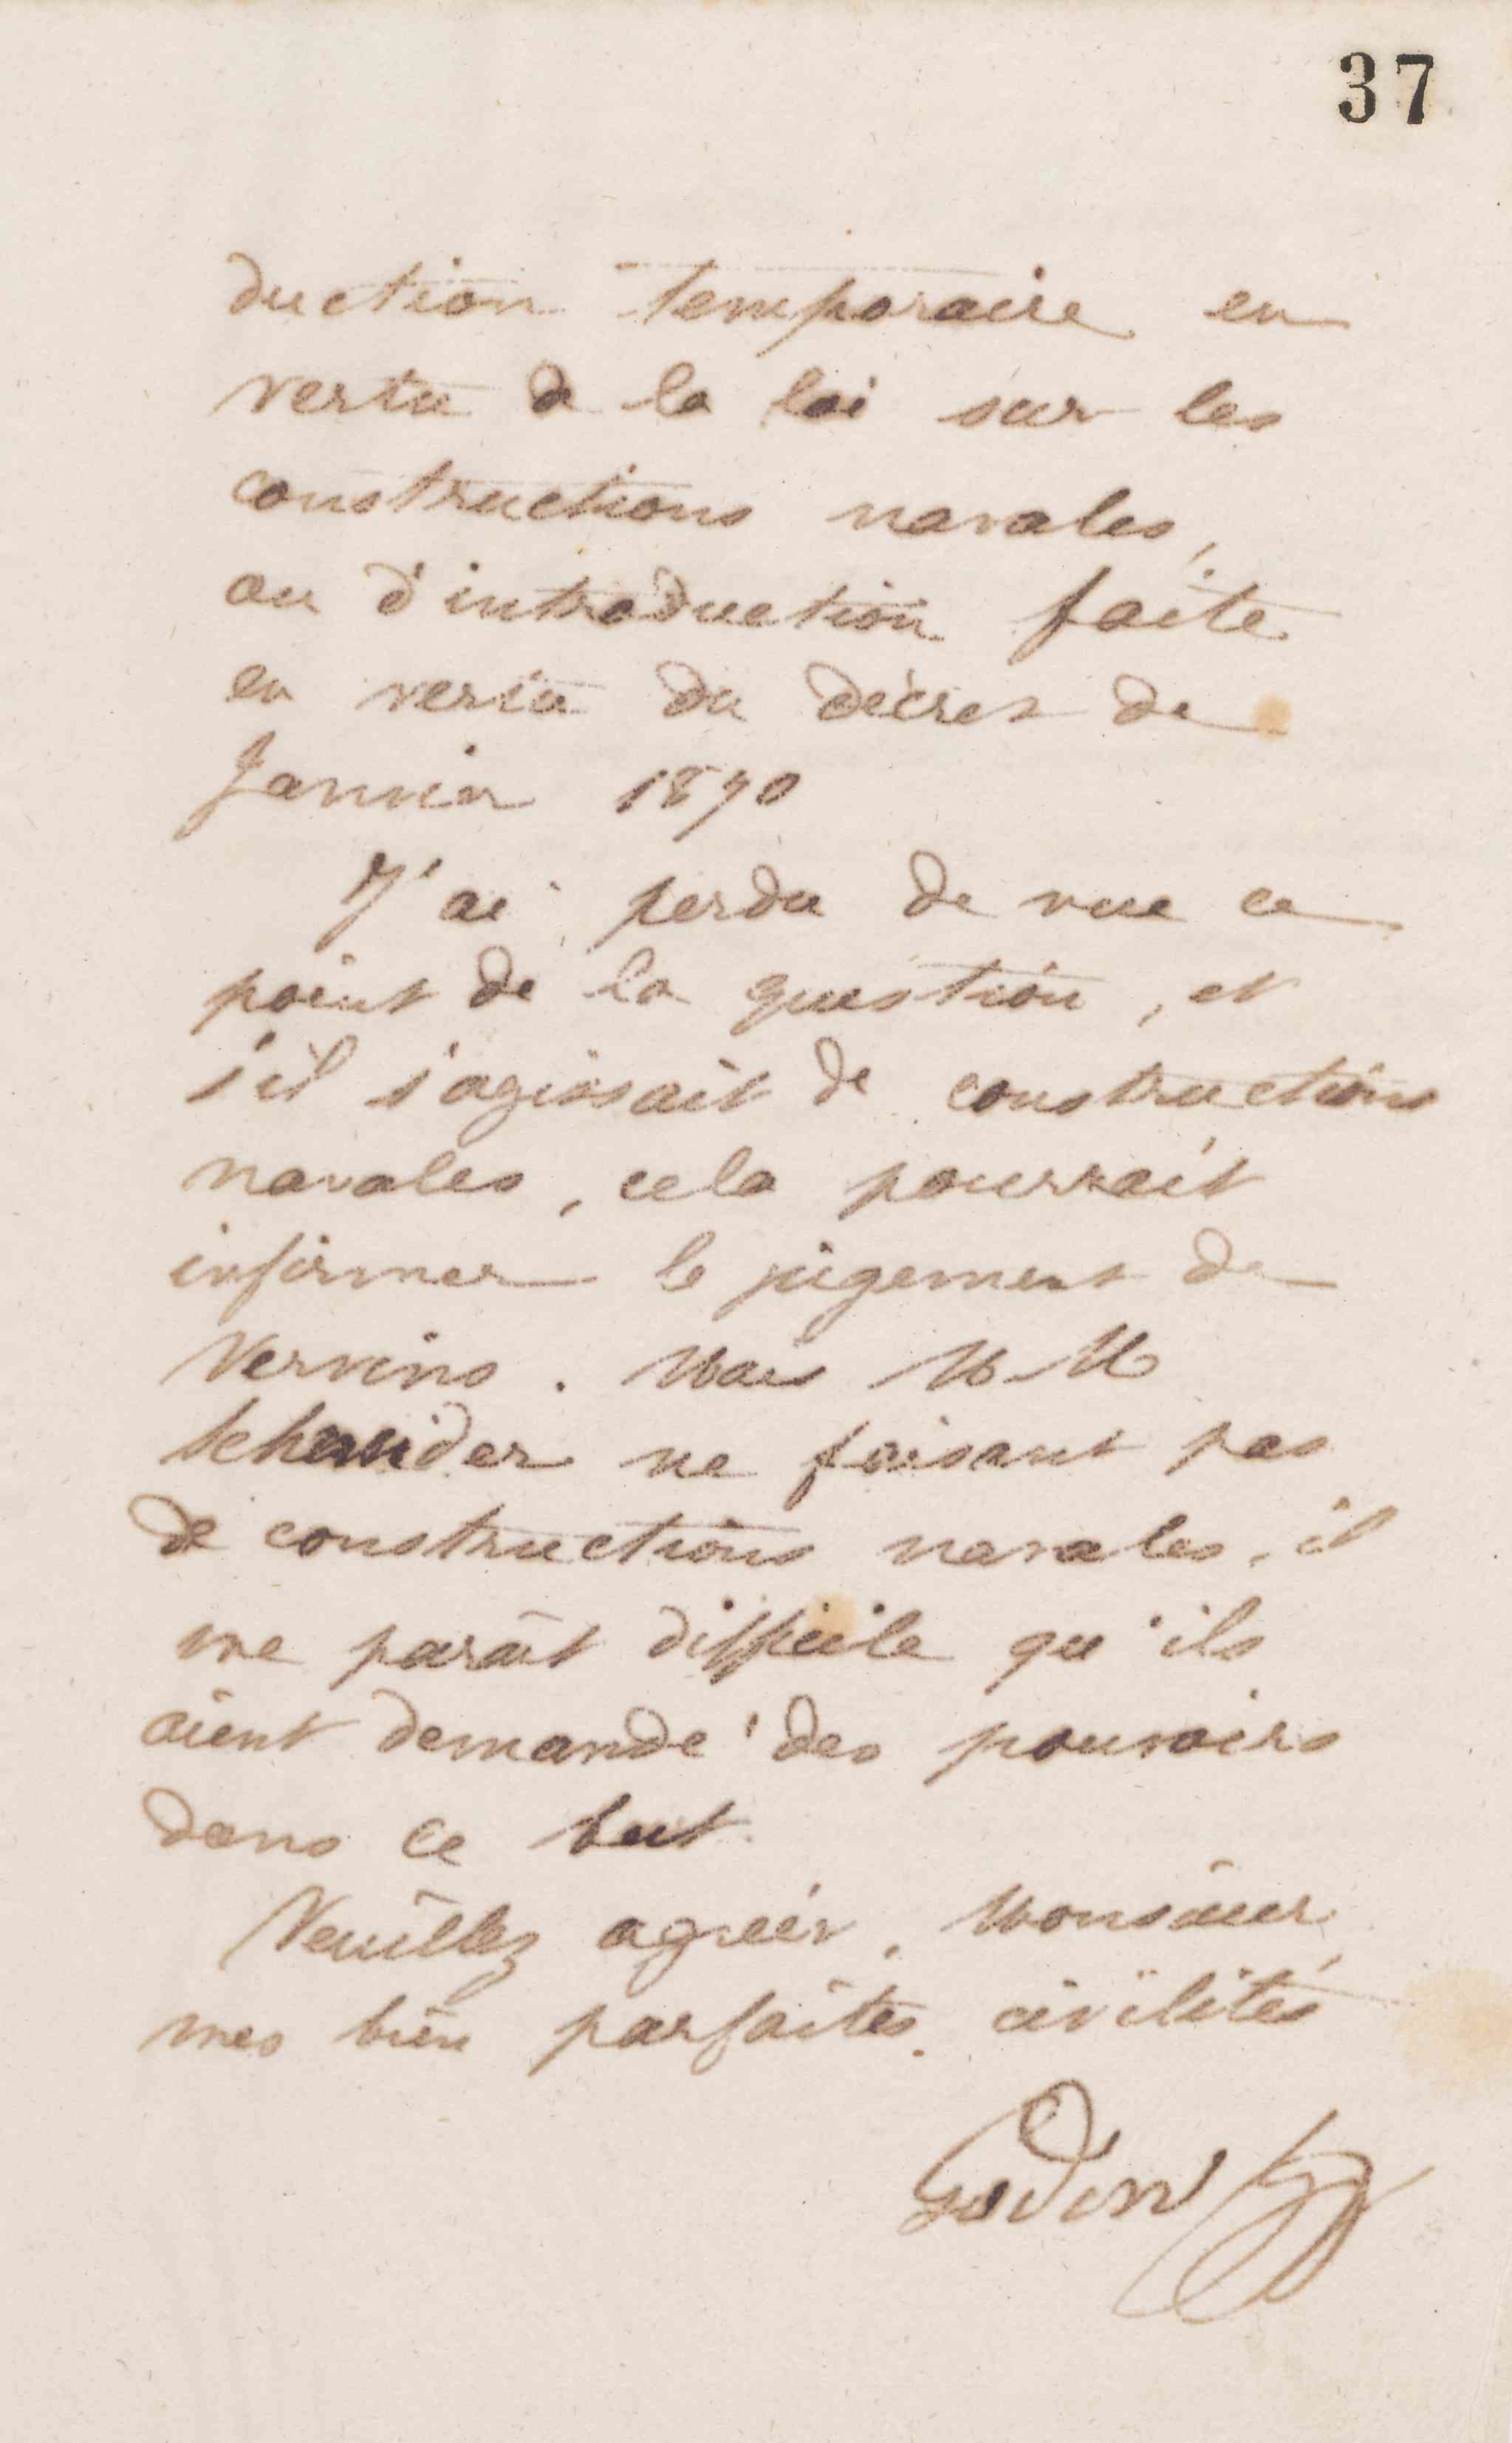 37
duction temporaire en
vertu de la loi sur les
constructions navales,
ou d'introduction faite
en vertu du décret de
Janvier 1870
J'ai perdu de vue ce
point de la question, et
s'il s'agissait de constructions
navales, cela pourrait
infirmer le jugement de
Vervins. Mais MM
Schneider ne faisant pas
de constructions navales, il
me paraît difficile qu'ils
aient demandé des pouvoirs
dans ce but.
Veuillez agréer, Monsieur,
mes bien parfaites civilités
Godin